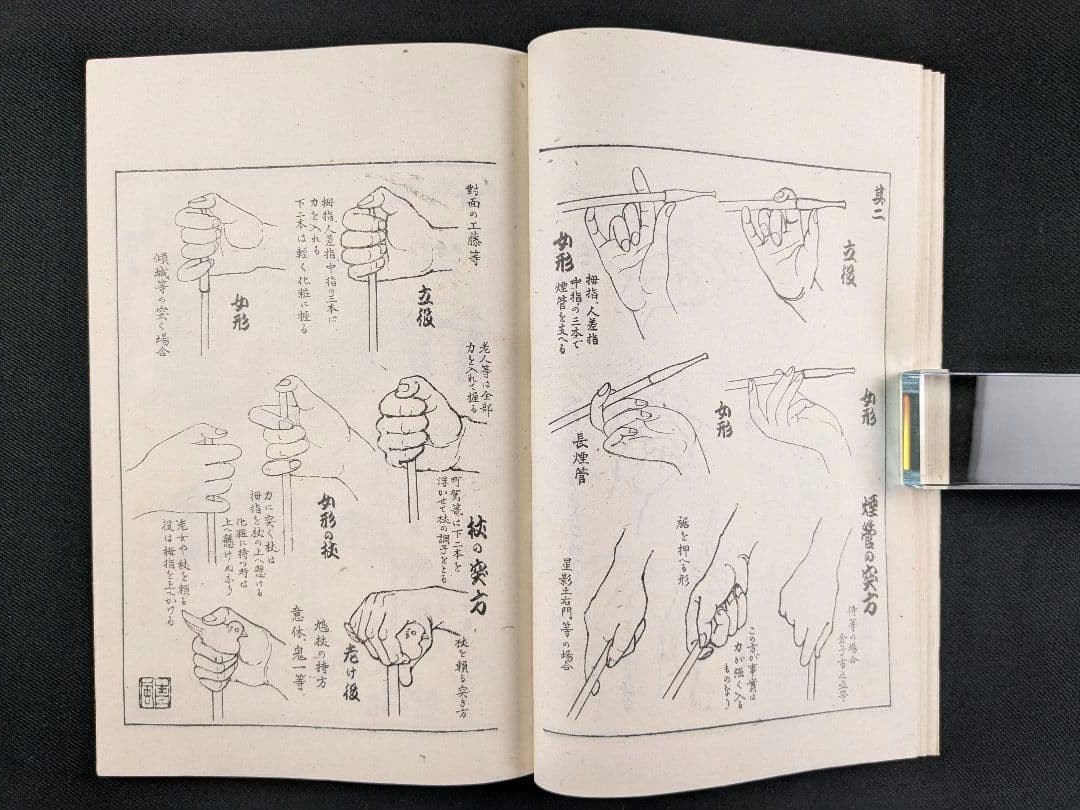 其二
立役
女形
拇指、人差指
中指の三本で
煙管を支へる
女形
女形
長煙管
煙管の突方
侍等の場合
金子市之丞等
この方が事實は
力が強く入る
ものなり
裾を押へる形
星影土右門等の場合
對面の工藤等
立役
拇指人差指中指の三本に
力を入れる
下二本は軽く化粧に握る
女形
傾城等の突く場合
老人等は全部
力を入れて握る
杖の突方
町駕籠は下二本を
浮かせて杖の調子をとる
女形の杖
力に突く杖は
拇指を杖の上へ懸ける
化粧に持つ時は
老女や杖を頼る
役は拇指を上へかける
杖を頼る突き方
老け役
鳩杖の持方
意休、鬼一等